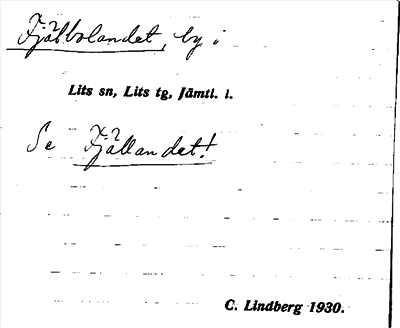 Fjälbolandet, by i
Lits sn, Lits tg, Jämtl. l.
Se Fjällandet!
C. Lindberg 1930.